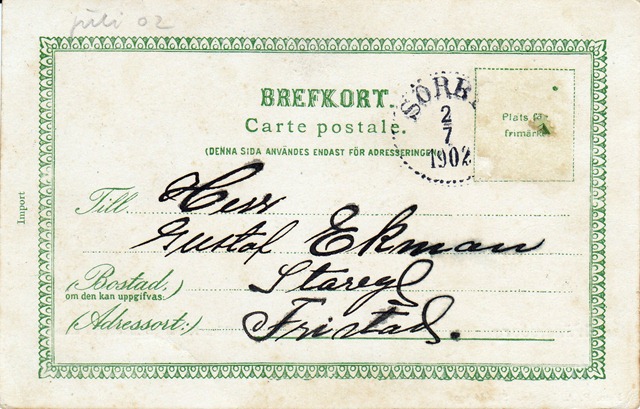 juli 02
BREFKORT.
Carte postale.
(DENNA SIDA ANVÄNDES ENDAST FÖR ADRESSERINGEN
SÖRBY
2
7
1902
Plats för
frimärke
Import
Till
Herr
Gustaf Ekman
(Bostad,)
om den kan uppgifvas:
(Adressort:)
Fristad.